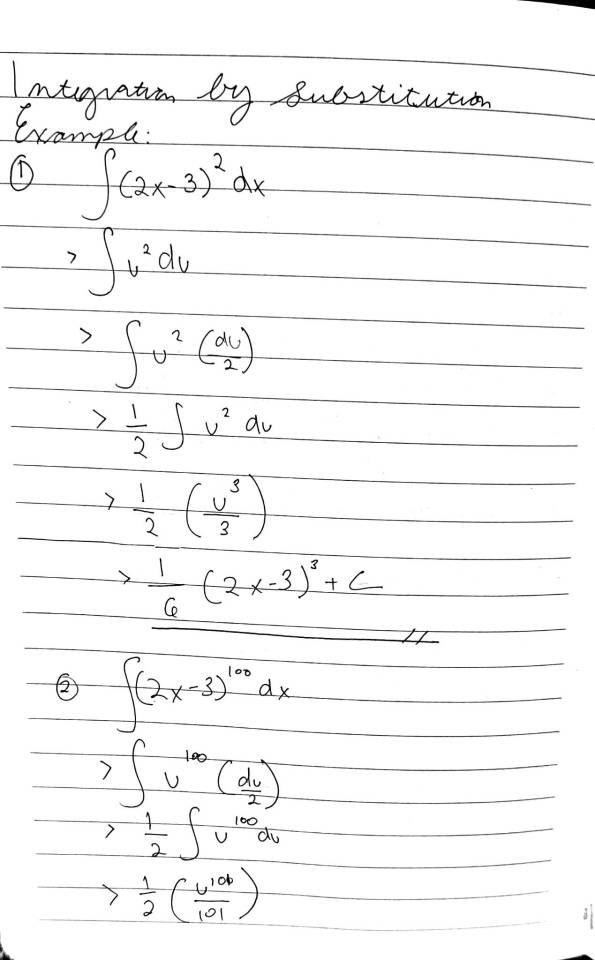 Integration by Substitution
Example:
① ∫(2x-3)² dx
> ∫ u² du
> ∫ u² (du/2)
> 1/2 ∫ u² du
> 1/2 (u³/3)
> 1/6 (2x-3)³ + C
② ∫(2x-3)¹⁰⁰ dx
> ∫ u¹⁰⁰ (du/2)
> 1/2 ∫ u¹⁰⁰ du
> 1/2 (u¹⁰⁶/101)